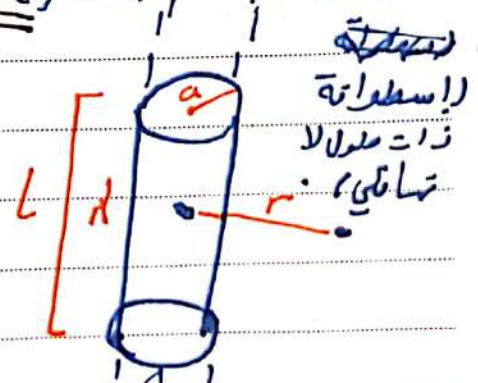 a
إسطوانة
ذات طول لا
نهائي.
L
λ
r